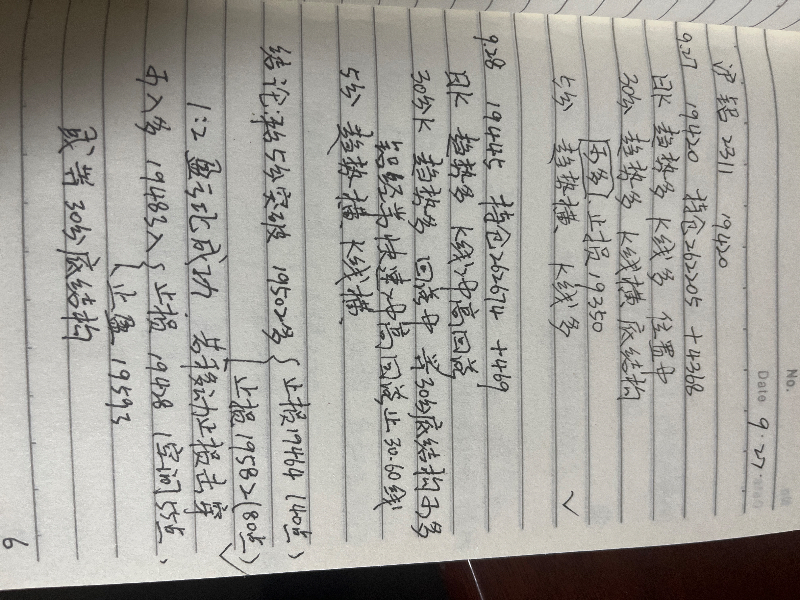 No.
Date 9.27.
沪铝 2311 19420
9.27 19420 持仓262205 +4368
日K 趋势多 K线多 位置中
30分 趋势多 K线横 底结构
开多 止损 19350
5分 趋势横 K线多 ✓
9.28 19445 持仓262674 +469
日K 趋势多 K线冲高回落
30分K 趋势多 回落中 等30分底结构开多
铝经常快速冲高回落止30.60线
5分 趋势横 K线横.
结论:若5分突破 19502多 { 止损19464 (40点)
止损 19582 (80点) ✓
1:2 盈亏比成功 若移动止损击穿
开入多 19483入 { 止损 19428 (空间55点)
止盈 19593
或等30分底结构
6